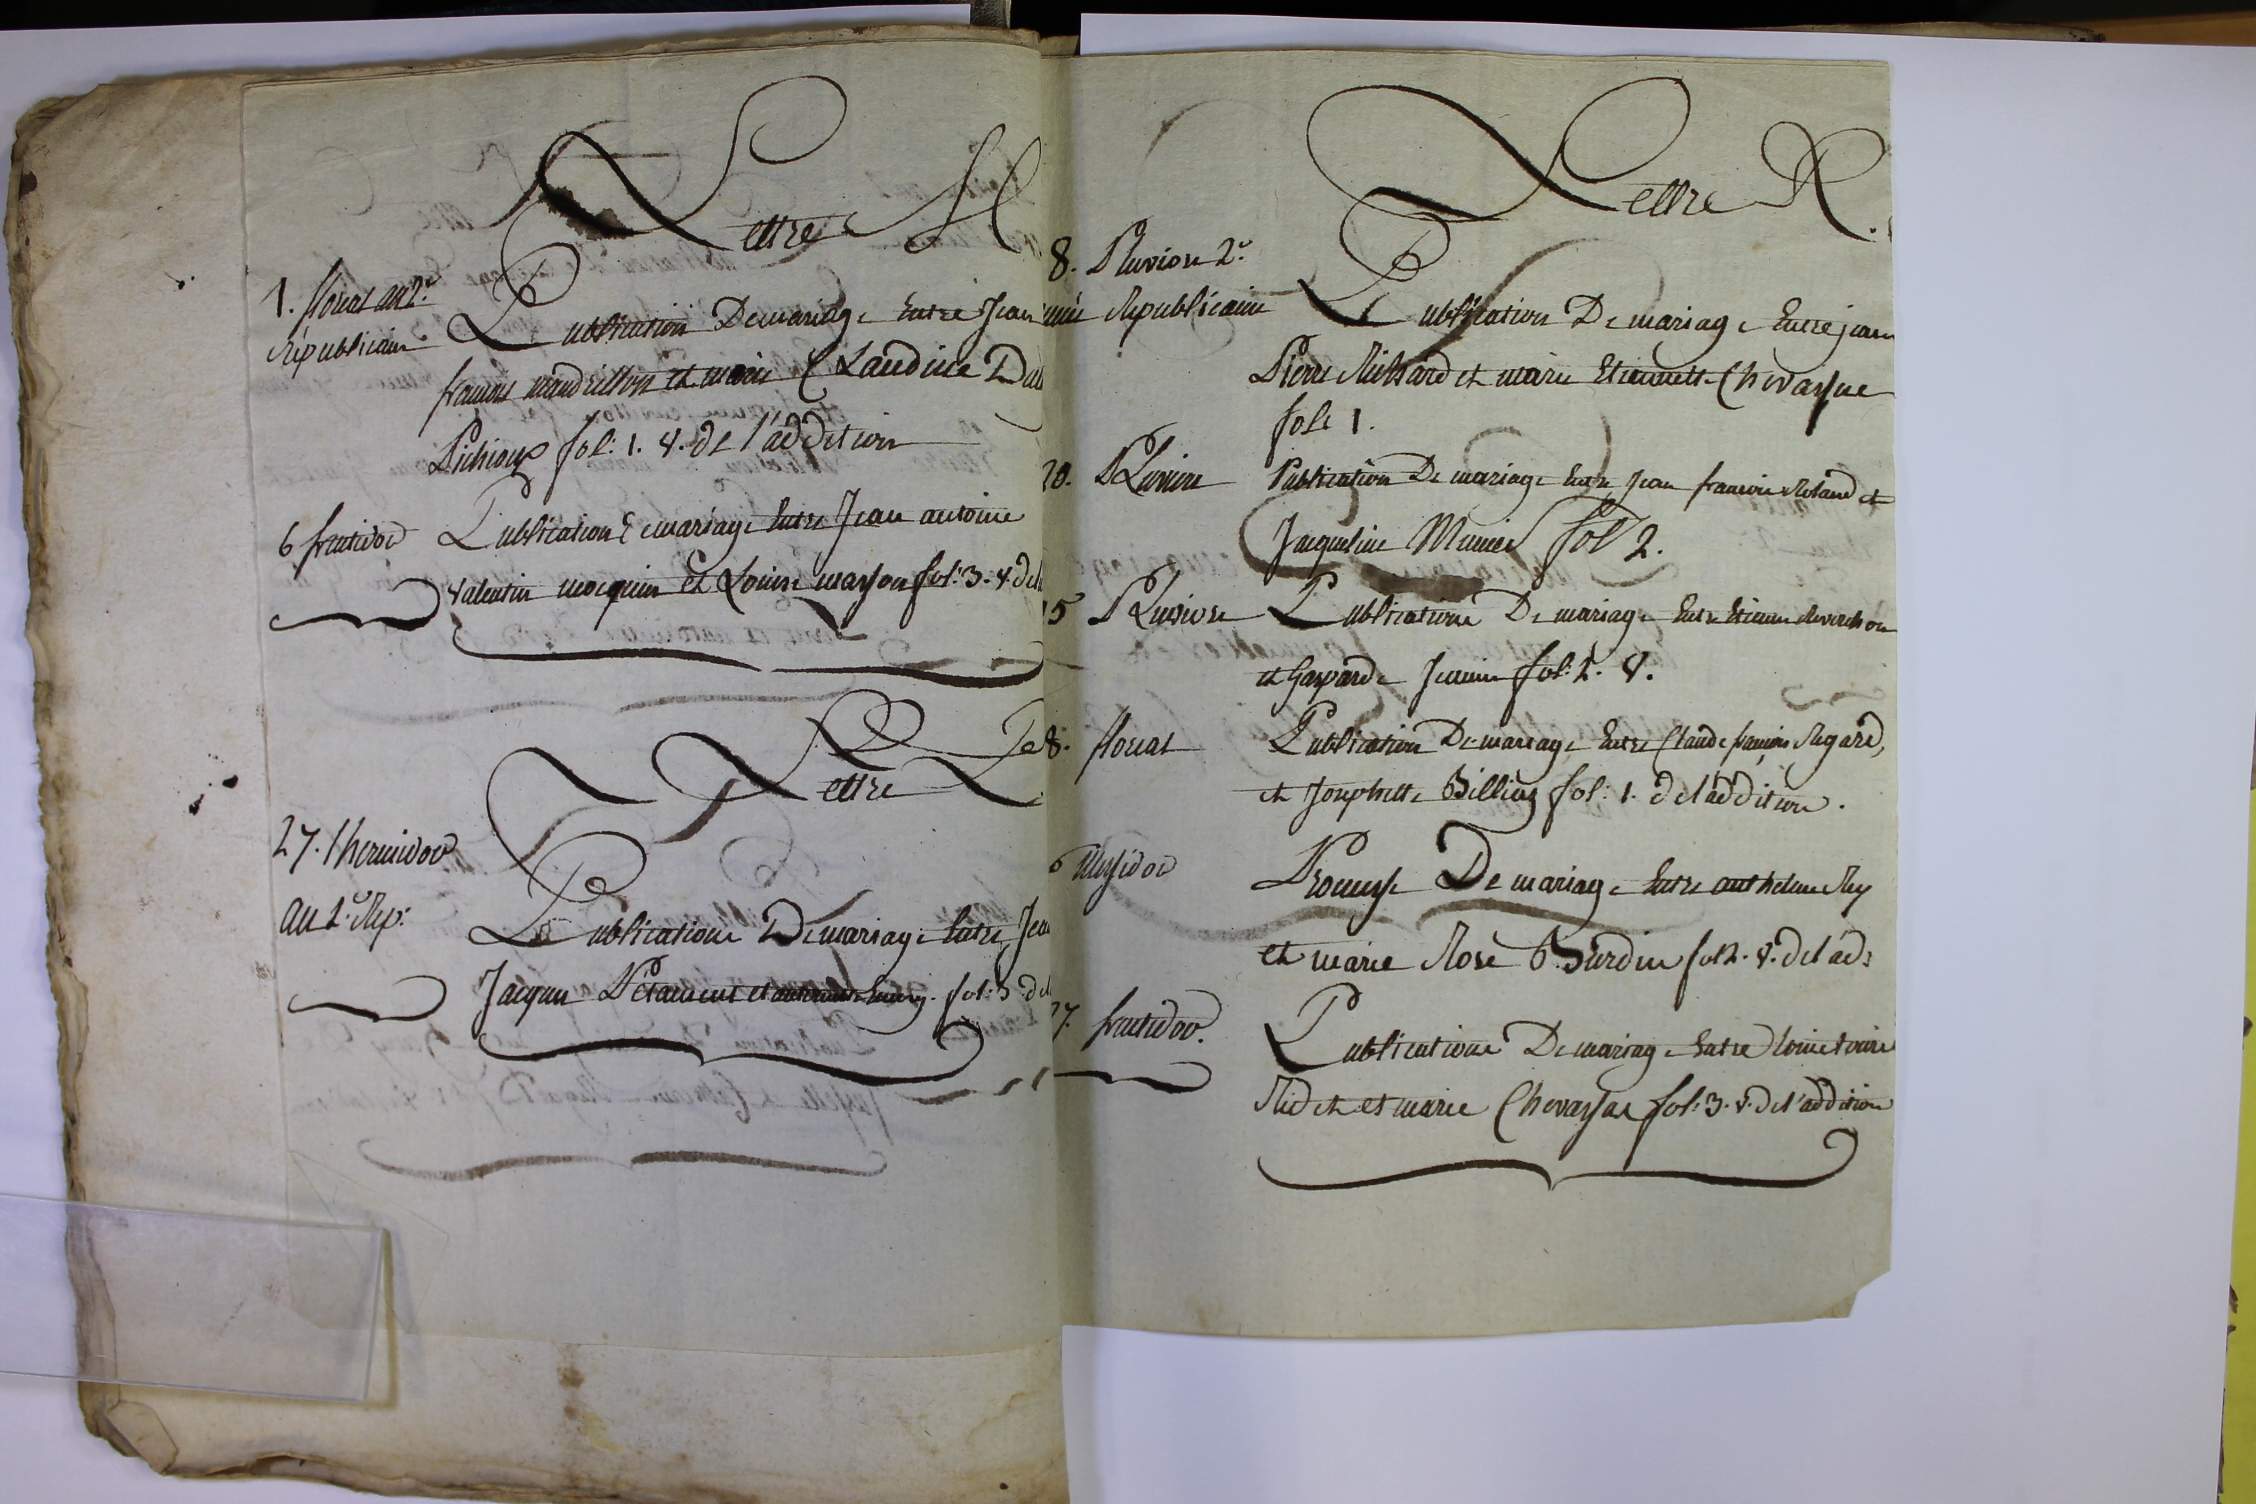 Lettre M
1. floreal an 2.e
républicain
Publication De mariage Entre Jean
francois mandrillon et marie Claudine Da
fol: 1. v. de l'addition
6 fructidor
Publication De mariage Entre Jean antoine
valentin mocquin et Louise masson fol: 3. v. del
Lettre P
27. thermidor
an 2.e Rep:
Publication De mariage Entre Jea
Jacques et fol: 3 del
Lettre R.
8. Pluviose 2.e
Republicaine
Publication De mariage Entre jean
Pierre Richard et marie Etiennette Chevassue
fol: 1.
20. Pluviose
Publication De mariage Entre Jean francois Roland et
Jacqueline Munier fol 2.
25 Pluviose
Publication De mariage Entre Etienne Reverchon
et Gasparde Jeunin fol: 2. v.
8. floreal
Publication De mariage Entre Claude francois Regard,
et Josephette Billiey fol: 1. del'addition.
6 Messidor
Promesse De mariage Entre anthelme Rey
et marie Rose Burdin fol 2. v. del'ad:
27. fructidor.
Publication De mariage Entre
et marie Chevassue fol: 3. v. de l'addition